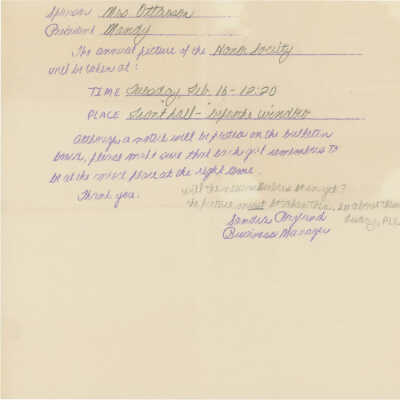 Sponsor Mrs. Ottteson
President Mandy
The annual picture of the Honor Society
will be taken at:
TIME Tuesday, Feb. 16 - 12:20
PLACE Front hall - before the windows
Although a notice will be posted on the bulletin
board, please make sure that each girl remembers to
be at the right place at the right time.
Thank you.
will the new members be in yet?
The picture must be taken then, so about
Sandra
Business Manager